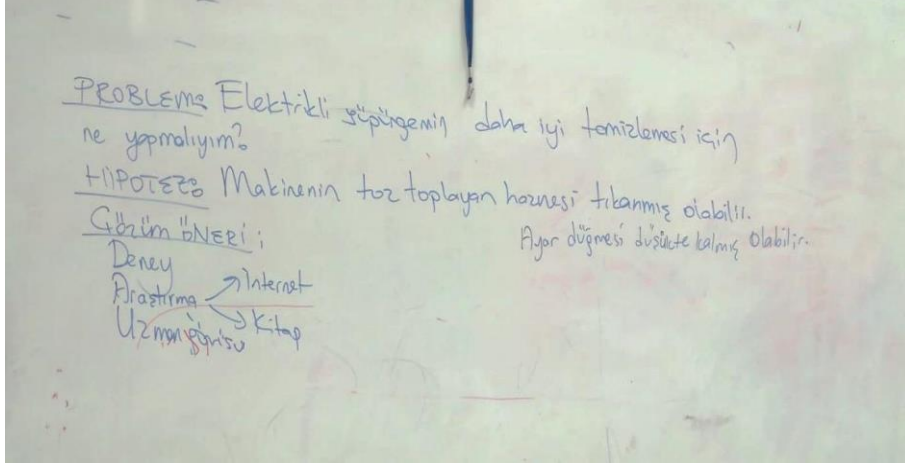 PROBLEM: Elektrikli süpürgemin daha iyi temizlemesi için
ne yapmalıyım?
HİPOTEZ: Makinenin toz toplayan haznesi tıkanmış olabilir.
Ayar düğmesi düşükte kalmış olabilir.
Çözüm ÖNERİ:
Deney
Araştırma → İnternet
→ Kitap
Uzman görüşü